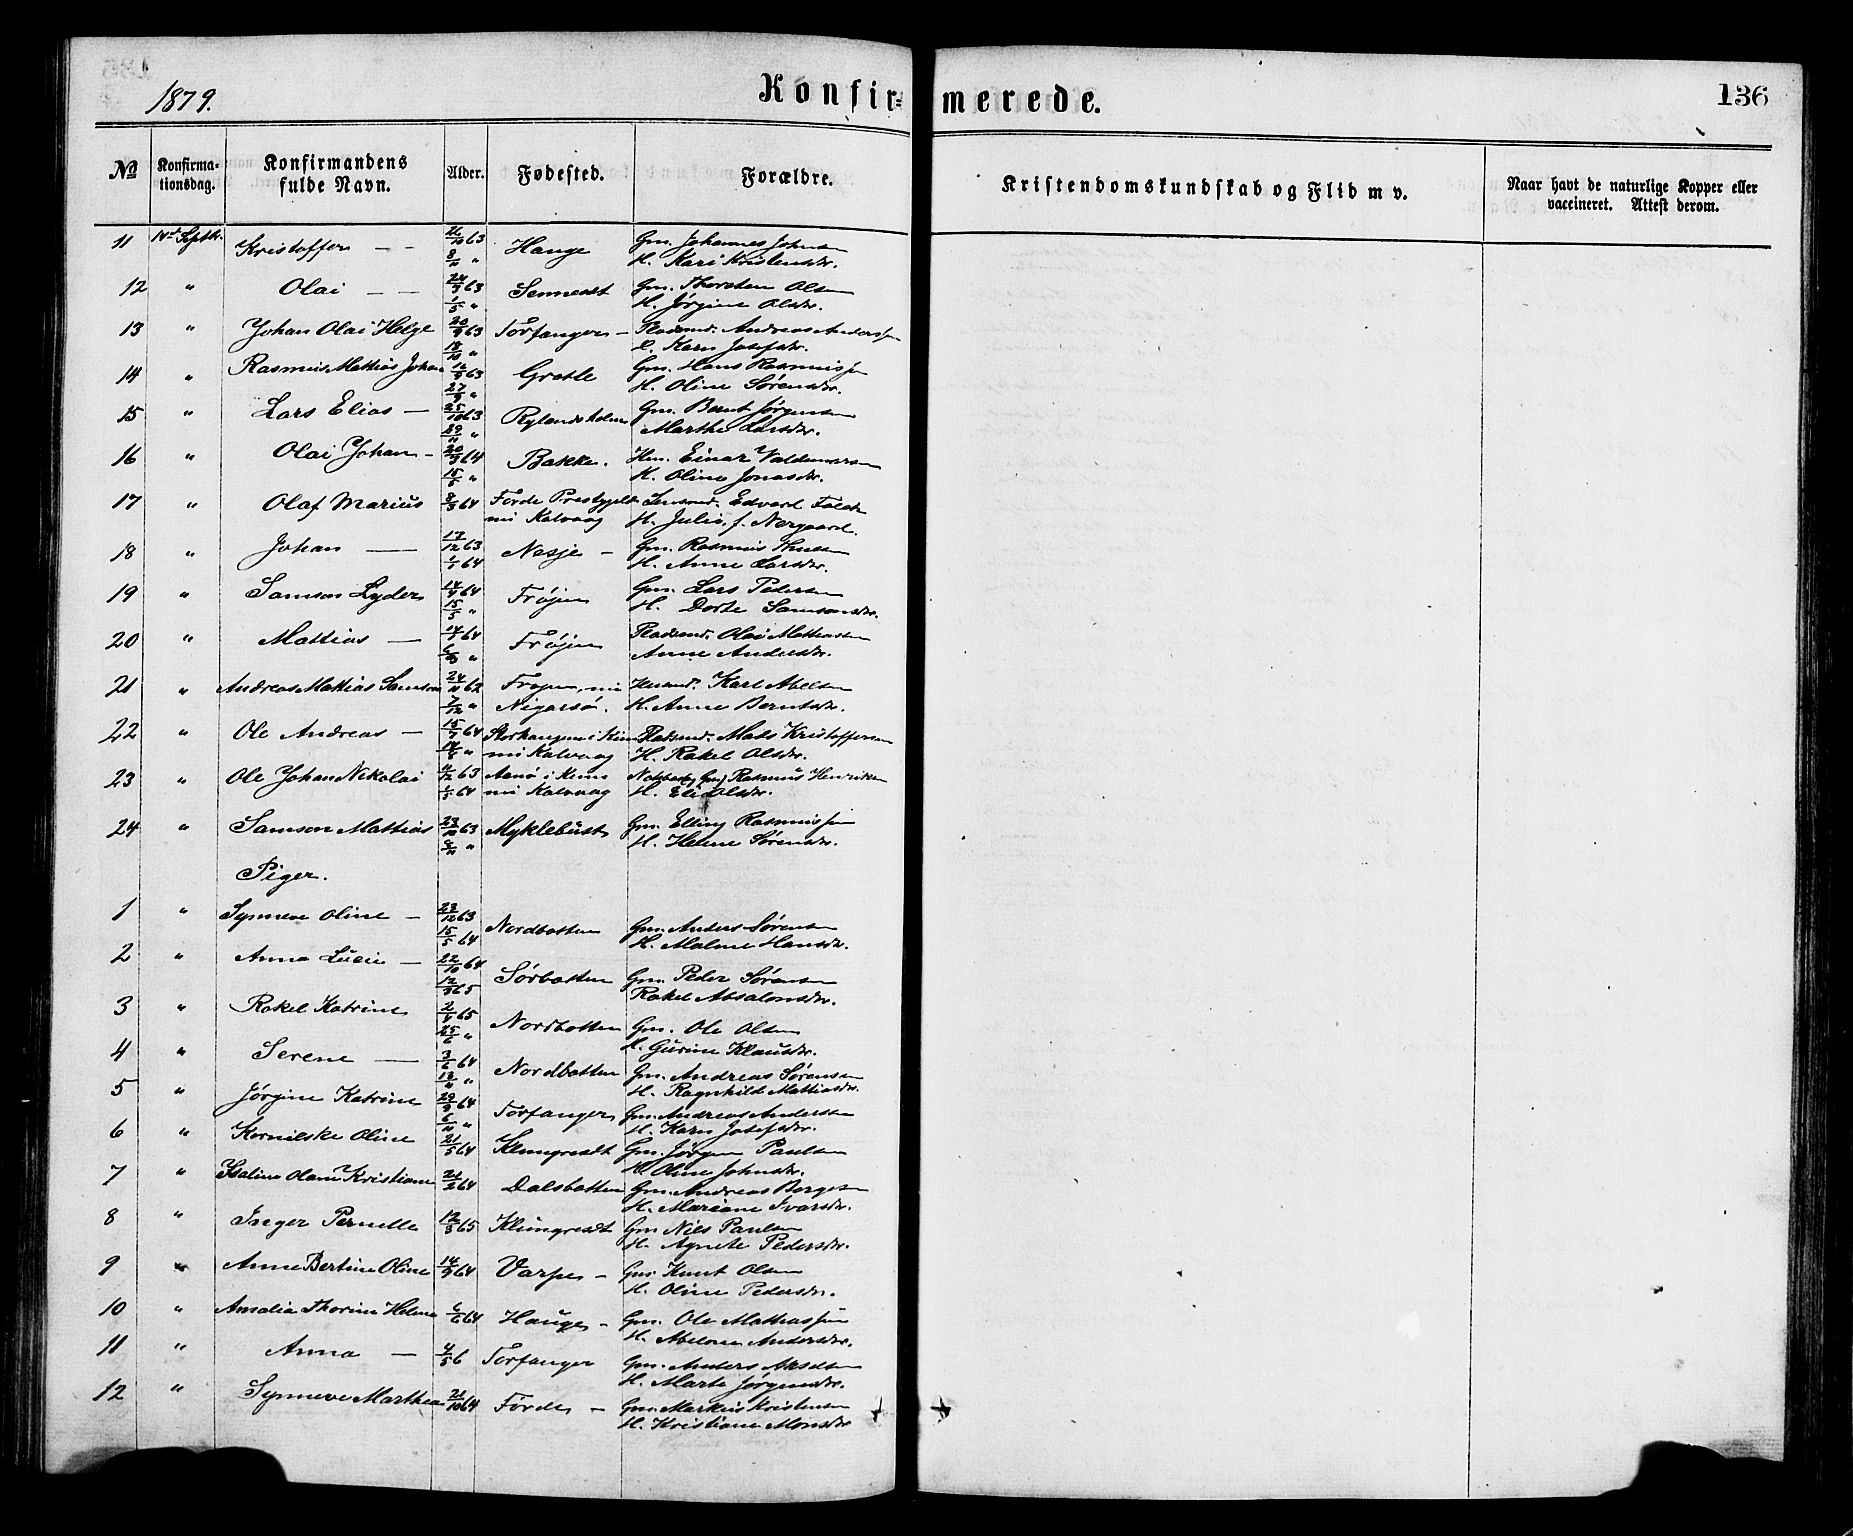 1879.
Konfirmerede.
136
No
Konfirmationsdag.
Konfirmandens fulde Navn.
Alder.
Fødested.
Forældre.
Kristendomskundskab og Flid m v.
Naar havt de naturlige Kopper eller vaccineret. Attest derom.
11 14de Septbr. Kristoffer — — 26/10 63 Hauge Gm. Johannes Johnsen
8/11 " H. Kari Kristensdr.
12 " Olai — — 24/3 63 Sennesdt Gm. Thorsten Olsen
1/5 " H. Jørgine Olsdr.
13 " Johan Olai Helge 20/9 63 Torfanger — Pladsmd. Andreas Anderssen
18/10 " Karn Josefsdr.
14 " Rasmus Mattias Johan 63 Grotle Gm. Hans Rasmussen
27/9 " H. Oline Sørensdr.
15 " Lars Elias — 25/10 63 Rylandsholm Gm. Bernt Jørgensen
29/11 " Marthe Larsdr.
16 " Olai Johan — 20/3 64 Bakke. Hm. Einar Valdemarsen
15/5 " H. Oline Jonasdr.
17 " Olaf Marius 8/3 64 Førde Prestegjeld Edvard Falch
nu Kalvaag H. Julie, f. Nørgaard.
18 " Johan — 17/12 63 Nesje — Gm. Rasmus Thuesen
1/1 64 H. Anne Larsdr.
19 " Samson Lyder 14/4 64 Frøjen Gm. Lars Pedersen
15/5 " H. Dorte Samsonsdr.
20 " Mattias — 14/7 64 Frøjen Pladsmd. Olai Mattiassen
" Anne Andersdr.
21 " Andreas Mattias Samson 24/11 62 Frøjen, nu Karl Abelsen
7/12 " Nigarsø. H. Anne Berntsdr.
22 " Ole Andreas — 15/7 64 Storhaugen i Kinn Pladsmd. Mads Kristoffersen
14/8 " nu Kalvaag H. Rakel Olsdr.
23 " Ole Johan Nikolai 63 Aanø i Kinn Rasmus Henriksen
1/5 64 nu Kalvaag H. Eli Olsdr.
24 " Samson Mattias 23/10 63 Myklebust Gm. Elling Rasmussen
8/11 " H. Helene Sørensdr.
Piger.
1 " Synneve Oline — 23/12 63 Nordbotten Gm. Anders Sørensen
15/5 64 H. Malene Hansdr.
2 " Anna Lucie — 22/10 64 Sørbotten Gm. Peder Sørensen
12/3 65 Rakel Absalonsdr.
3 " Rakel Katrine 2/4 65 Nordbotten Gm. Ole Olsen
25/6 " H. Gurine Klausdr.
4 " Serene — 3/6 64 Nordbotten Gm. Andreas Sørensen
" H. Ragnhild Mattiasdr.
5 " Jørgine Katrine 29/9 64 Torfanger Gm. Andreas Andersen
6/11 " H. Karn Josefsdr.
6 " Kornilske Oline 21/5 64 Klungresdt Gm. Jørgen Paulsen
H. Oline Johnsdr.
7 " Olava Kristiane 21/2 64 Dalsbotten Gm. Andreas Børgesen
H. Mariane Ivarsdr.
8 " Inger Pernelle 12/3 65 Klungresdt Gm. Nils Paulsen
H. Agnete Pedersdr.
9 " Anne Bertine Oline 14/9 64 Varpe — Gm. Knut Olsen
H. Oline Pedersdr.
10 " Amalia Thorine Helene 6/6 64 Hauge — Gm. Ole Mattiassen
H. Abelone Andersdr.
11 " Anna — 4/5 6 Torfanger Gm. Anders Akselsen
H. Marte Jørgensdr.
12 " Synneve Marthea 21/10 64 Førde — Gm. Markus Kristensen
H. Kristiane Monsdr.